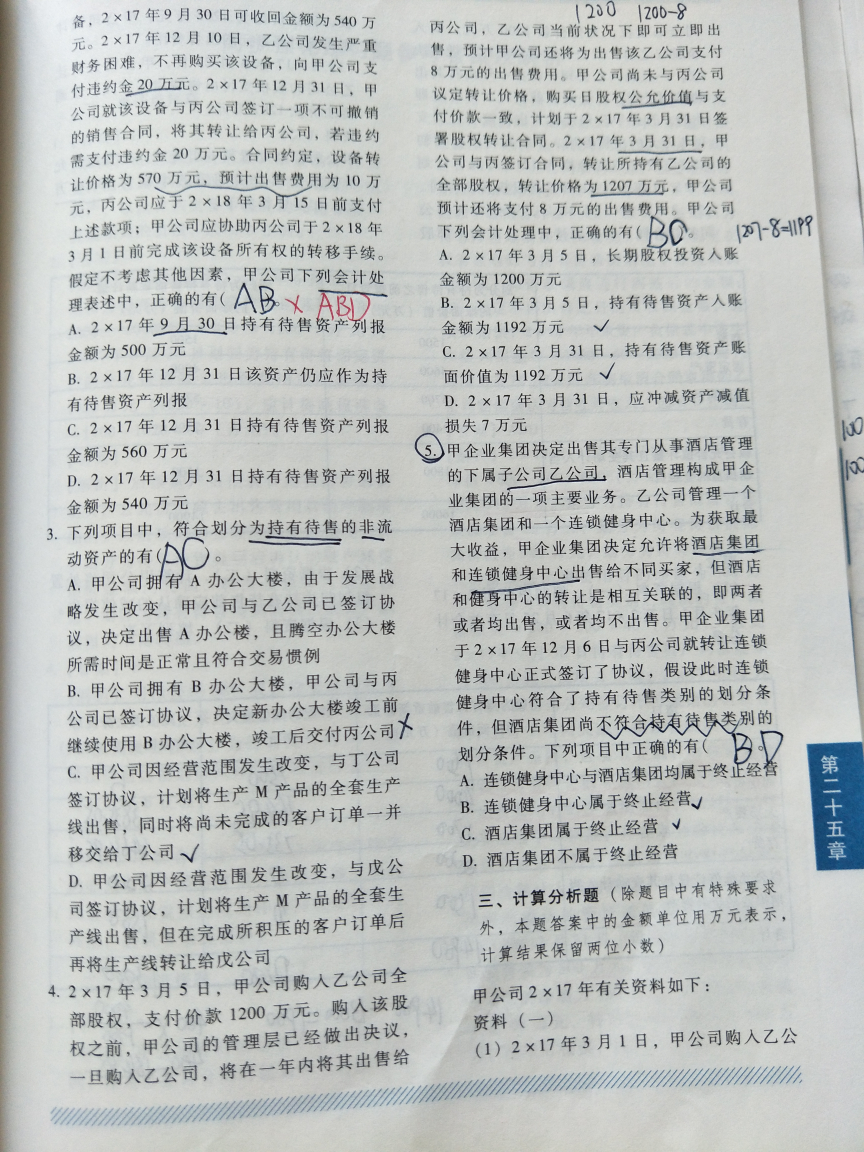 备，2×17年9月30日可收回金额为540万
元。2×17年12月10日，乙公司发生严重
财务困难，不再购买该设备，向甲公司支
付违约金20万元。2×17年12月31日，甲
公司就该设备与丙公司签订一项不可撤销
的销售合同，将其转让给丙公司，若违约
需支付违约金20万元。合同约定，设备转
让价格为570万元，预计出售费用为10万
元，丙公司应于2×18年3月15日前支付
上述款项；甲公司应协助丙公司于2×18年
3月1日前完成该设备所有权的转移手续。
假定不考虑其他因素，甲公司下列会计处
理表述中，正确的有( AB。× ABD
A. 2×17年9月30日持有待售资产列报
金额为500万元
B. 2×17年12月31日该资产仍应作为持
有待售资产列报
C. 2×17年12月31日持有待售资产列报
金额为560万元
D. 2×17年12月31日持有待售资产列报
金额为540万元
3. 下列项目中，符合划分为持有待售的非流
动资产的有( AC )。
A. 甲公司拥有A办公大楼，由于发展战
略发生改变，甲公司与乙公司已签订协
议，决定出售A办公楼，且腾空办公大楼
所需时间是正常且符合交易惯例
B. 甲公司拥有B办公大楼，甲公司与丙
公司已签订协议，决定新办公大楼竣工前
继续使用B办公大楼，竣工后交付丙公司×
C. 甲公司因经营范围发生改变，与丁公司
签订协议，计划将生产M产品的全套生产
线出售，同时将尚未完成的客户订单一并
移交给丁公司√
D. 甲公司因经营范围发生改变，与戊公
司签订协议，计划将生产M产品的全套生
产线出售，但在完成所积压的客户订单后
再将生产线转让给戊公司
4. 2×17年3月5日，甲公司购入乙公司全
部股权，支付价款1200万元。购入该股
权之前，甲公司的管理层已经做出决议，
一旦购入乙公司，将在一年内将其出售给
1200 1200-8
丙公司，乙公司当前状况下即可立即出
售，预计甲公司还将为出售该乙公司支付
8万元的出售费用。甲公司尚未与丙公司
议定转让价格，购买日股权公允价值与支
付价款一致，计划于2×17年3月31日签
署股权转让合同。2×17年3月31日，甲
公司与丙签订合同，转让所持有乙公司的
全部股权，转让价格为1207万元，甲公司
预计还将支付8万元的出售费用。甲公司
下列会计处理中，正确的有( BC。 1207-8=1199
A. 2×17年3月5日，长期股权投资入账
金额为1200万元
B. 2×17年3月5日，持有待售资产入账
金额为1192万元 √
C. 2×17年3月31日，持有待售资产账
面价值为1192万元 √
D. 2×17年3月31日，应冲减资产减值
损失7万元
5. 甲企业集团决定出售其专门从事酒店管理
的下属子公司乙公司，酒店管理构成甲企
业集团的一项主要业务。乙公司管理一个
酒店集团和一个连锁健身中心。为获取最
大收益，甲企业集团决定允许将酒店集团
和连锁健身中心出售给不同买家，但酒店
和健身中心的转让是相互关联的，即两者
或者均出售，或者均不出售。甲企业集团
于2×17年12月6日与丙公司就转让连锁
健身中心正式签订了协议，假设此时连锁
健身中心符合了持有待售类别的划分条
件，但酒店集团尚不符合持有待售类别的
划分条件。下列项目中正确的有( BD。
A. 连锁健身中心与酒店集团均属于终止经营
B. 连锁健身中心属于终止经营√
C. 酒店集团属于终止经营 √
D. 酒店集团不属于终止经营
三、计算分析题（除题目中有特殊要求
外，本题答案中的金额单位用万元表示，
计算结果保留两位小数）
甲公司2×17年有关资料如下：
资料（一）
(1) 2×17年3月1日，甲公司购入乙公
100
100
第二十五章